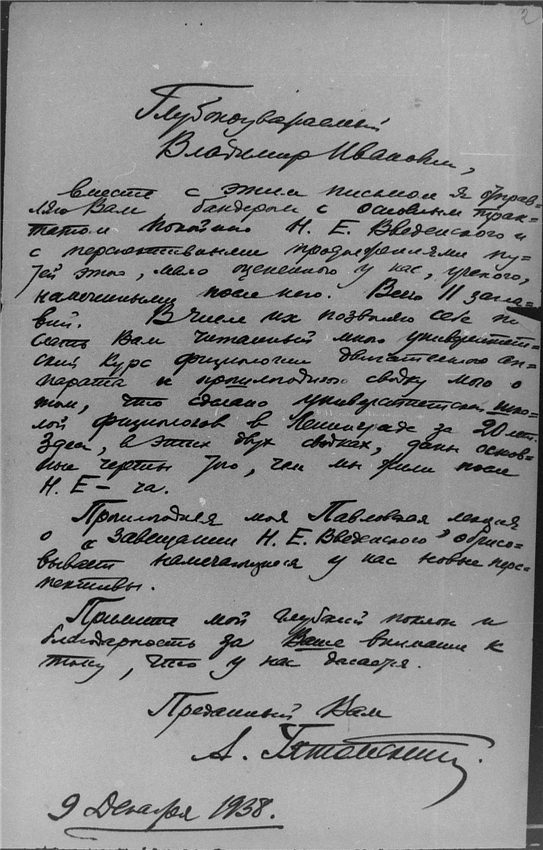 2
Глубокоуважаемый
Владимир Иванович,
вместе с этим письмом я отправ-
ляю Вам бандероль с основным трак-
татом покойного Н. Е. Введенского и
с перспективными продолжениями пу-
тей этого, мало оцененного у нас, ученого,
намеченными после него. Всего 11 загла-
вий. В числе их позволяю себе по
слать Вам читанный мною университет-
ский курс физиологии двигательного ап-
парата и прошлогоднюю сводку мою о
том, что сделано университетской шко-
лой физиологов в Ленинграде за 20 лет.
Здесь, в этих двух сводках, даны основ-
ные черты того, чем мы жили после
Н. Е – ча.
Прошлогодняя моя Павловская лекция
о "Завещании Н. Е. Введенского" обрисо-
вывает намечающиеся у нас новые перс-
пективы.
Примите мой глубокий поклон и
благодарность за Ваше внимание к
тому, что у нас делается.
Преданный Вам
А. Ухтомский.
9 Декабря 1938.